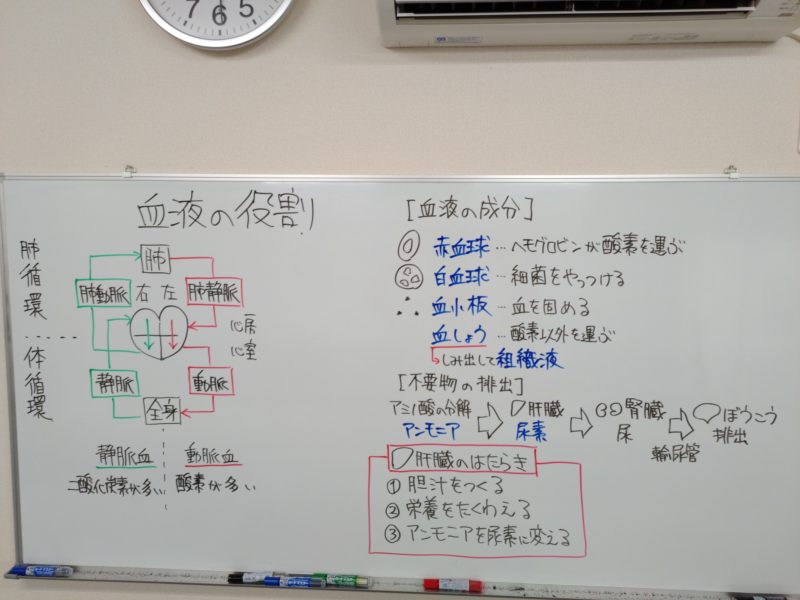 7 6 5
血液の役割
肺循環
体循環
肺
肺動脈
右 左
肺静脈
心房
心室
静脈
動脈
全身
静脈血
二酸化炭素が多い
動脈血
酸素が多い
[血液の成分]
赤血球…ヘモグロビンが酸素を運ぶ
白血球…細菌をやっつける
血小板…血を固める
血しょう…酸素以外を運ぶ
しみ出して組織液
[不要物の排出]
アミノ酸の分解 肝臓 腎臓 ぼうこう
アンモニア 尿素 尿 排出
輸尿管
肝臓のはたらき
① 胆汁をつくる
② 栄養をたくわえる
③ アンモニアを尿素に変える